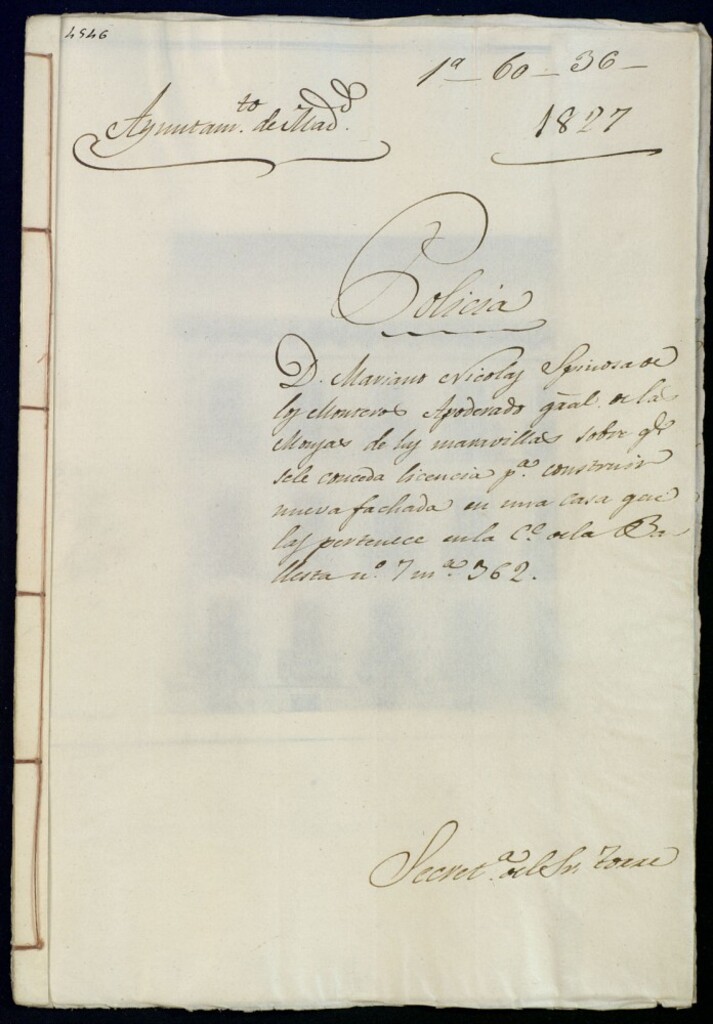 4546
1ª - 60 - 36 -
Ayuntam.to de Mad.d
1827
Policia
D. Mariano Nicolas Spinosa de
los Monteros Apoderado gral. de las
Monjas de las maravillas sobre q.e
sele conceda licencia p.a construir
nueva fachada en una casa que
las pertenece en la C.e de la Ba-
llesta n.o 7 m.a 362.
Secret.a del Sr. Torre